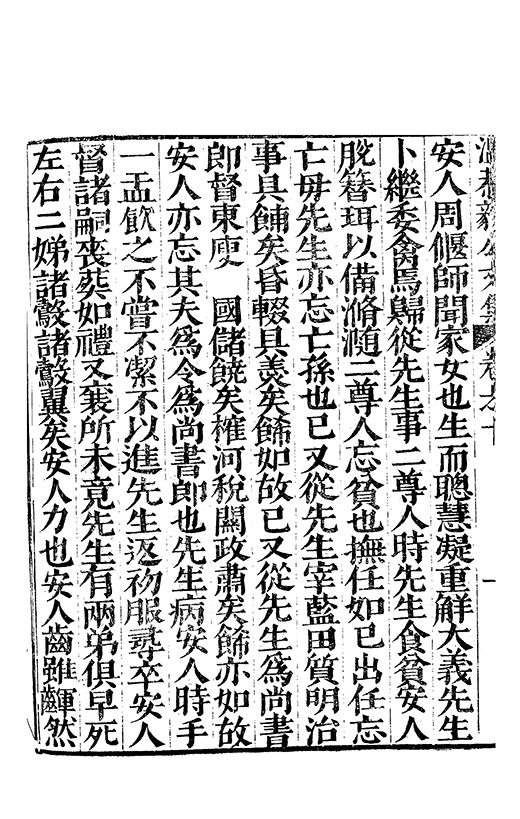 溫恭毅公文集 卷之十 一
安人周偃師聞家女也生而聰慧凝重觧大義先生
卜繼委禽焉歸從先生事二尊人時先生食貧安人
脫簪珥以備滫瀡二尊人忘貧也撫任如已出任忘
亡毋先生亦忘亡孫也已又從先生宰藍田質明治
事具餔矣昏輟具羡矣餙如故已又從先生爲尚書
郎督東庾　國儲饒矣榷河稅關政肅矣餙亦如故
安人亦忘其夫爲令爲尚書郎也先生病安人時手
一盂飲之不嘗不潔不以進先生返初服尋卒安人
督諸嗣喪葬如禮又襄所未竟先生有兩弟俱早死
左右二娣諸鷇諸鷇翼矣安人力也安人齒雖齳然